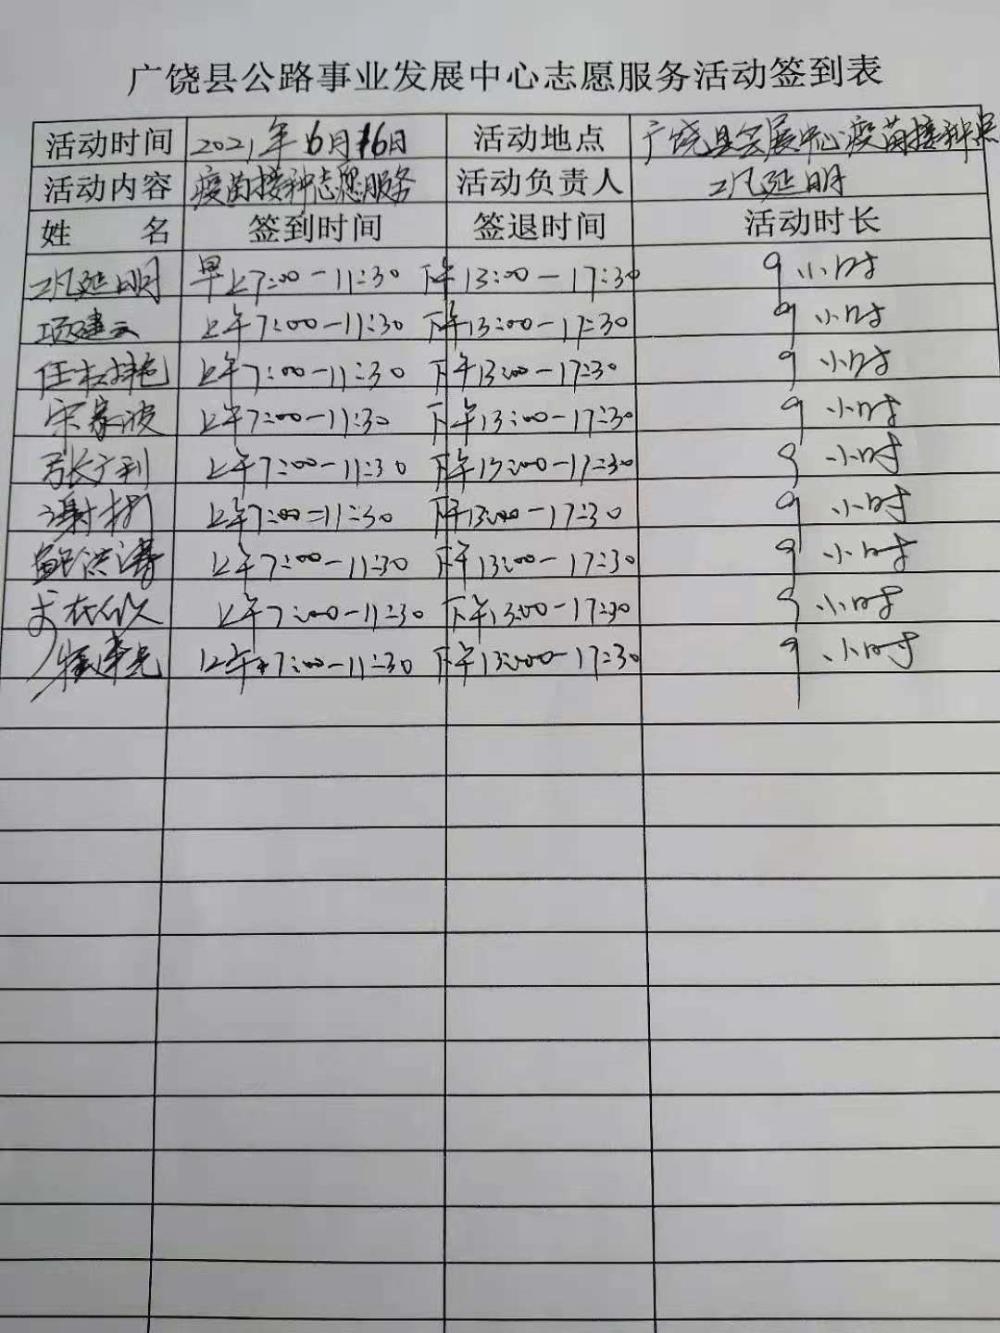 广饶县公路事业发展中心志愿服务活动签到表
活动时间 2021年6月16日 活动地点 广饶县会展中心疫苗接种点
活动内容 疫苗接种志愿服务 活动负责人 巩延明
姓 名 签到时间 签退时间 活动时长
巩延明 早上7:00-11:30 下午13:00-17:30 9小时
项建云 上午7:00-11:30 下午13:00-17:30 9小时
上午7:00-11:30 下午13:00-17:30 9小时
宋家波 上午7:00-11:30 下午13:00-17:30 9小时
张广利 上午7:00-11:30 下午13:00-17:30 9小时
谢 上午7:00-11:30 下午13:00-17:30 9小时
洪涛 上午7:00-11:30 下午13:00-17:30 9小时
上午7:00-11:30 下午13:00-17:30 9小时
上午7:00-11:30 下午13:00-17:30 9小时